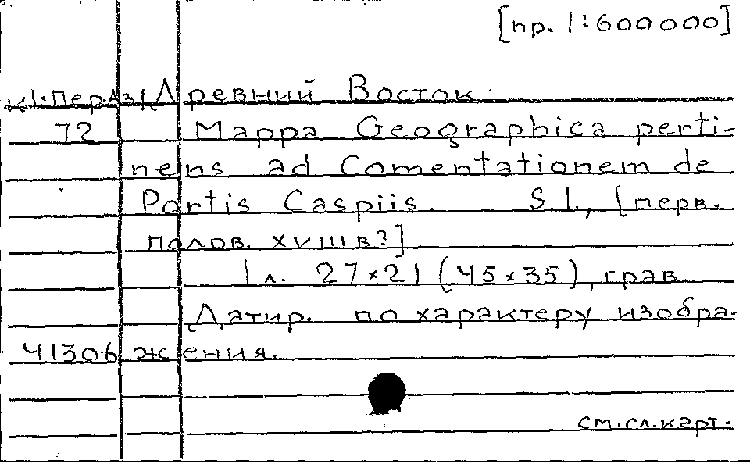 [пр. 1:600000]
К 1:Пер Аз/ Древний Восток.
72 Mappa Geographica perti-
nens ad Comentationem de
Portis Caspiis. S.l., [перв.
полов. XVIII в?]
1 л. 27×21 (45×35), грав.
Датир. по характеру изобра-
41306 жения.
см.сл.карт.